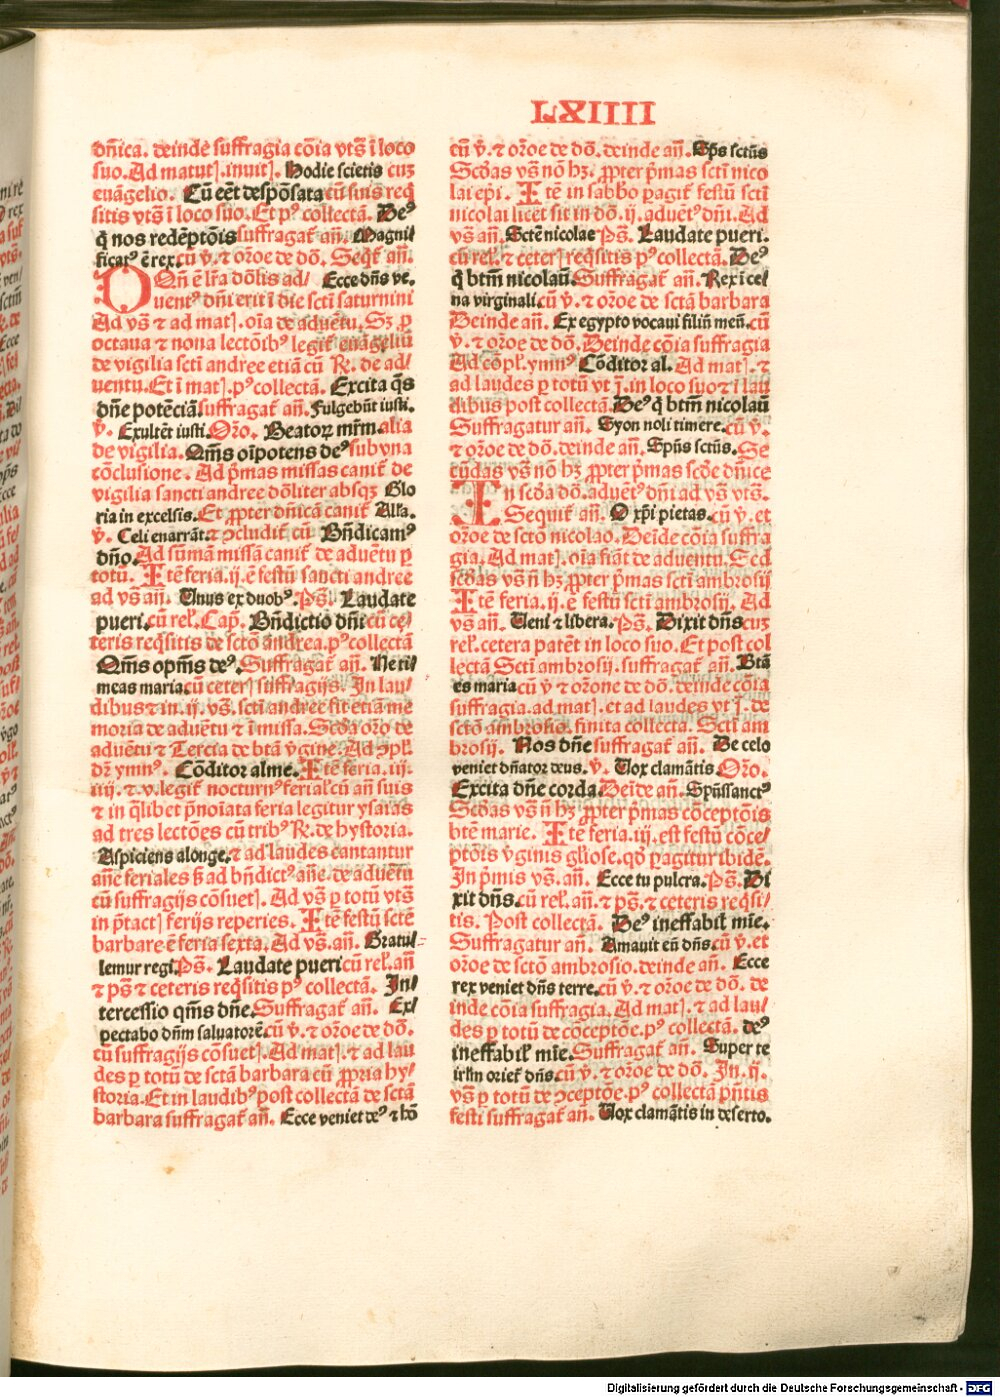 LXIIII
dn̄ica. deinde suffragia cōia vtꝫ ī loco
suo. Ad matutꝭ. inuitꝭ. Hodie scietis cuꝫ
euāgelio. Cū eēt despōsata cū suis req̄
sitis vtꝫ ī loco suo. Et pꝰ collectā. Deꝰ
q̄ nos redēptōis suffragat̄ an̄. Magni⸗
ficatꝰ ē rex. cū v̄. ⁊ or̄oe de dō. Seqt̄ an̄.
Qn̄ ē lr̄a dōlis ad⸗ Ecce dn̄s ve.
uentꝰ dn̄i erit ī die scti saturnini
Ad vꝫ ⁊ ad matꝭ. oīa de aduētu. Sꝫ ꝑ
octaua ⁊ nona lectōibꝰ legit̄ euāgeliū
de vigilia scti andree etiā cū R̄. de ad⸗
uentu. Et ī matꝭ. pꝰ collectā. Excita q̄s
dn̄e potēciā. suffragat̄ an̄. Fulgebūt iusti.
v̄. Exultēt iusti. Or̄o. Beatoꝝ mr̄m. alia
de vigilia. Om̄s oīpotens deꝰ sub vna
cōclusione. Ad p̄mas missas canit̄ de
vigilia sancti andree dōliter absqꝫ Glo
ria in excelsis. Et ꝓpter dn̄icā canit̄ Alla.
v̄. Celi enarrāt. ⁊ ↄcludit̄ cū Bn̄dicamꝰ
dn̄o. Ad sūmā missā canit̄ de aduētu ꝑ
totū. Itē feria. ij. ē festū sancti andree
ad vꝫ an̄. Unus ex duobꝰ. Pꝫ. Laudate
pueri. cū relꝭ. Cap̄. Bn̄dictio dn̄i cū ce⸗
teris reqsitis de sctō andrea. pꝰ collectā
Om̄s opm̄s deꝰ. Suffragat̄ an̄. Ne ti⸗
meas maria cū ceterꝭ suffragijs. In lau⸗
dibus ⁊ in. ij. vꝫ. scti andree fit etiā me
moria de aduētu ⁊ ī missa. Scḋa or̄o de
aduētu ⁊ Tercia de btā v̄gine. Ad ꝯpl̄.
dr̄ ymnꝰ. Cōditor alme. Itē feria. iij.
iiij. ⁊ v. legit̄ nocturnꝰ ferialꝭ cū an̄ suis
⁊ in qlibet p̄noīata feria legitur ysaias
ad tres lectōes cū tribꝰ R̄. de hystoria.
Aspiciens alonge. ⁊ ad laudes cantantur
an̄e feriales ꝫ ad bn̄dictꝰ an̄e. de aduētu
cū suffragijs cōsuetꝭ. Ad vꝫ ꝑ totū vtꝫ
in p̄tactꝭ ferijs reperies. Itē festū sctē
barbare ē feria sexta. Ad vꝫ. an̄. Gratu⸗
lemur regi. Pꝫ. Laudate pueri cū relꝭ. an̄
⁊ pꝫ ⁊ ceteris reqsitis pꝰ collectā. In⸗
tercessio qm̄s dn̄e. Suffragat̄ an̄. Ex⸗
pectabo dn̄m saluatorē. cū v̄. ⁊ or̄oe de dō.
cū suffragijs cōsuetꝭ. Ad matꝭ. ⁊ ad lau
des ꝑ totū de sctā barbara cū ꝓpria hy⸗
storia. Et in laudibꝰ post collectā de sctā
barbara suffragat̄ an̄. Ecce veniet deꝰ ⁊ hō
cū v̄. ⁊ or̄oe de dō. deinde an̄. Sp̄s sctūs
Scḋas vꝫ nō hꝫ. ꝓpter p̄mas scti nico
lai ep̄i. Itē in sabbo pagit̄ festū scti
nicolai licet sit in dō. ij. aduētꝰ dn̄i. Ad
vꝫ an̄. Sctē nicolae Pꝫ. Laudate pueri.
cū relꝭ. ⁊ ceterꝭ reqsitis pꝰ collectā. Deꝰ
q̄ btm̄ nicolaū. Suffragat̄ an̄. Rex i ce⸗
na virginali. cū v̄. ⁊ or̄oe de sctā barbara
Deinde an̄. Ex egypto vocaui filiū meū. cū
v̄. ⁊ or̄oe de dō. Deinde cōia suffragia
Ad cōplꝭ. ymnꝰ Cōditor al. Ad matꝭ. ⁊
ad laudes ꝑ totū vt ꝭ. in loco suo ⁊ ī lau
dibus post collectā Deꝰ q̄ btm̄ nicolaū
Suffragatur an̄. Syon noli timere. cū v̄.
⁊ or̄oe de dō. deinde an̄. Spūs sctūs. Se
cūdas vꝫ nō hꝫ ꝓpter p̄mas scḋe dn̄ice
In scḋa dō. aduētꝰ dn̄i ad vꝫ vtꝫ.
Sequit̄ an̄. O xp̄i pietas. cū v̄. et
or̄oe de sctō nicolao. Deīde cōia suffra
gia. Ad matꝭ. oīa fiāt de aduentu. Secd
scḋas vꝫ n̄ hꝫ ꝓpter p̄mas scti ambrosij
Itē feria. ij. ē festū scti ambrosij. Ad
vꝫ an̄. Ueni ⁊ libera. Pꝫ. Dixit dn̄s cuꝫ
relꝭ. cetera patēt in loco suo. Et post col
lectam Scti ambrosij. suffragat̄ an̄. Btā
es maria cū v̄ ⁊ or̄one de dō. deinde cōia
suffragia. ad matꝭ. et ad laudes vt ꝭ. de
sctō ambrosio. finita collecta. Scti am
brosij. Nos dn̄e suffragat̄ an̄. De celo
veniet dn̄ator deus. v̄. Uox clamātis. Or̄o.
Excita dn̄e corda. Deīde an̄. Spūs sanctꝰ
Scḋas vꝫ n̄ hꝫ ꝓpter p̄mas cōceptōis
btē marie. Itē feria. iij. est festū cōce⸗
ptōis v̄ginis gl̄iose. qḋ pagitur ibidē.
In p̄mis vꝫ. an̄. Ecce tu pulcra. Pꝫ. Di
xit dn̄s. cū relꝭ. an̄. ⁊ pꝫ. ⁊ ceteris reqsi⸗
tis. Post collectā. Deꝰ ineffabilꝭ mīe.
Suffragatur an̄. Amauit eū dn̄s. cū v̄. et
or̄oe de sctō ambrosio. deinde an̄. Ecce
rex veniet dn̄s terre. cū v̄. ⁊ or̄oe de dō. de
inde cōia suffragia. Ad matꝭ. ⁊ ad lau⸗
des ꝑ totū de cōceptōe. pꝰ collectā. deꝰ
ineffabilꝭ mīe. Suffragat̄ an̄. Super te
irl̄m oriet̄ dn̄s. cū v̄. ⁊ or̄oe de dō. In. ij.
vꝫ ꝑ totū de ↄceptōe. pꝰ collectā p̄ntis
festi suffragat̄ an̄. Uox clamātis in deserto.
Digitalisierung gefördert durch die Deutsche Forschungsgemeinschaft - DFG